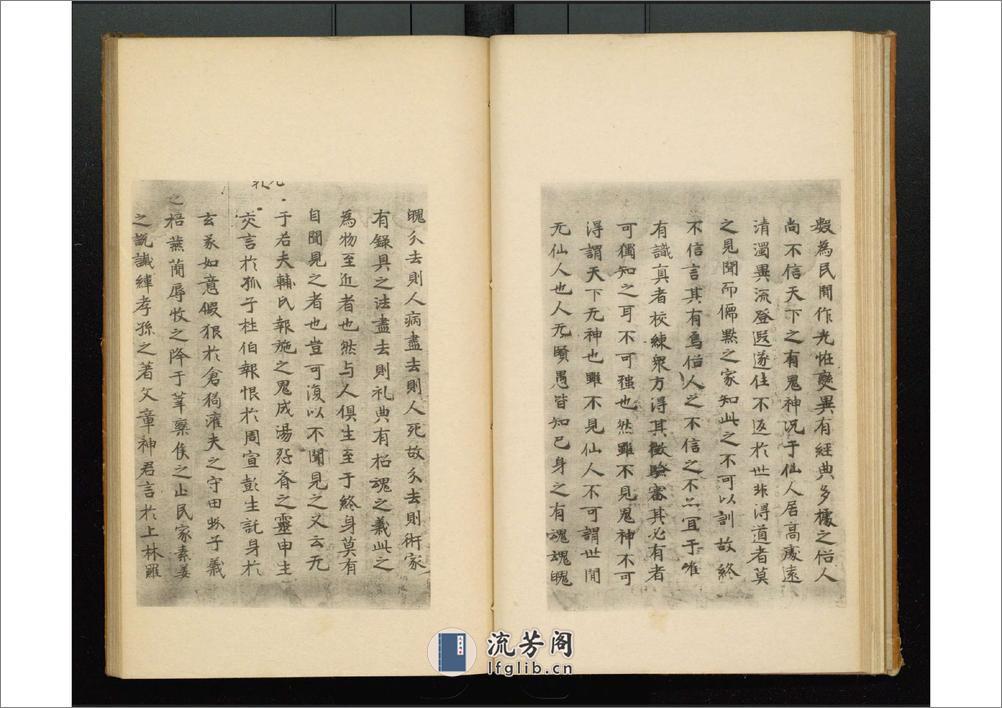 數為民間作光恠變異有經典多據之俗人
尚不信天下之有鬼神况于仙人居高處遠
清濁異流登遐遂往不返於世非得道者莫
之見聞而儒墨之家知此之不可以訓故終
不信言其有焉俗人之不信之不亦宜于唯
有識真者校練衆方得其徵驗審其必有者
可獨知之耳不可强也然雖不見鬼神不可
得謂天下无神也雖不見仙人不可謂世間
无仙人也人无賢愚皆知己身之有魂魂魄
魄分去則人病盡去則人死故分去則術家
有錄具之法盡去則礼典有招魂之義此之
為物至近者也然与人俱生至于終身莫有
自聞見之者也豈可復以不聞見之又云无
于若夫輔氏報施之鬼成湯怒齊之靈申生
交言於狐子杜伯報恨於周宣彭生託身於
玄豕如意假狠於倉狗灌夫之守田蚡子義
之掊燕蕳辱收之降于莘欒侯之止民家素姜
之說讖緯孝孫之著文章神君言於上林羅
流芳阁
lfglib.cn